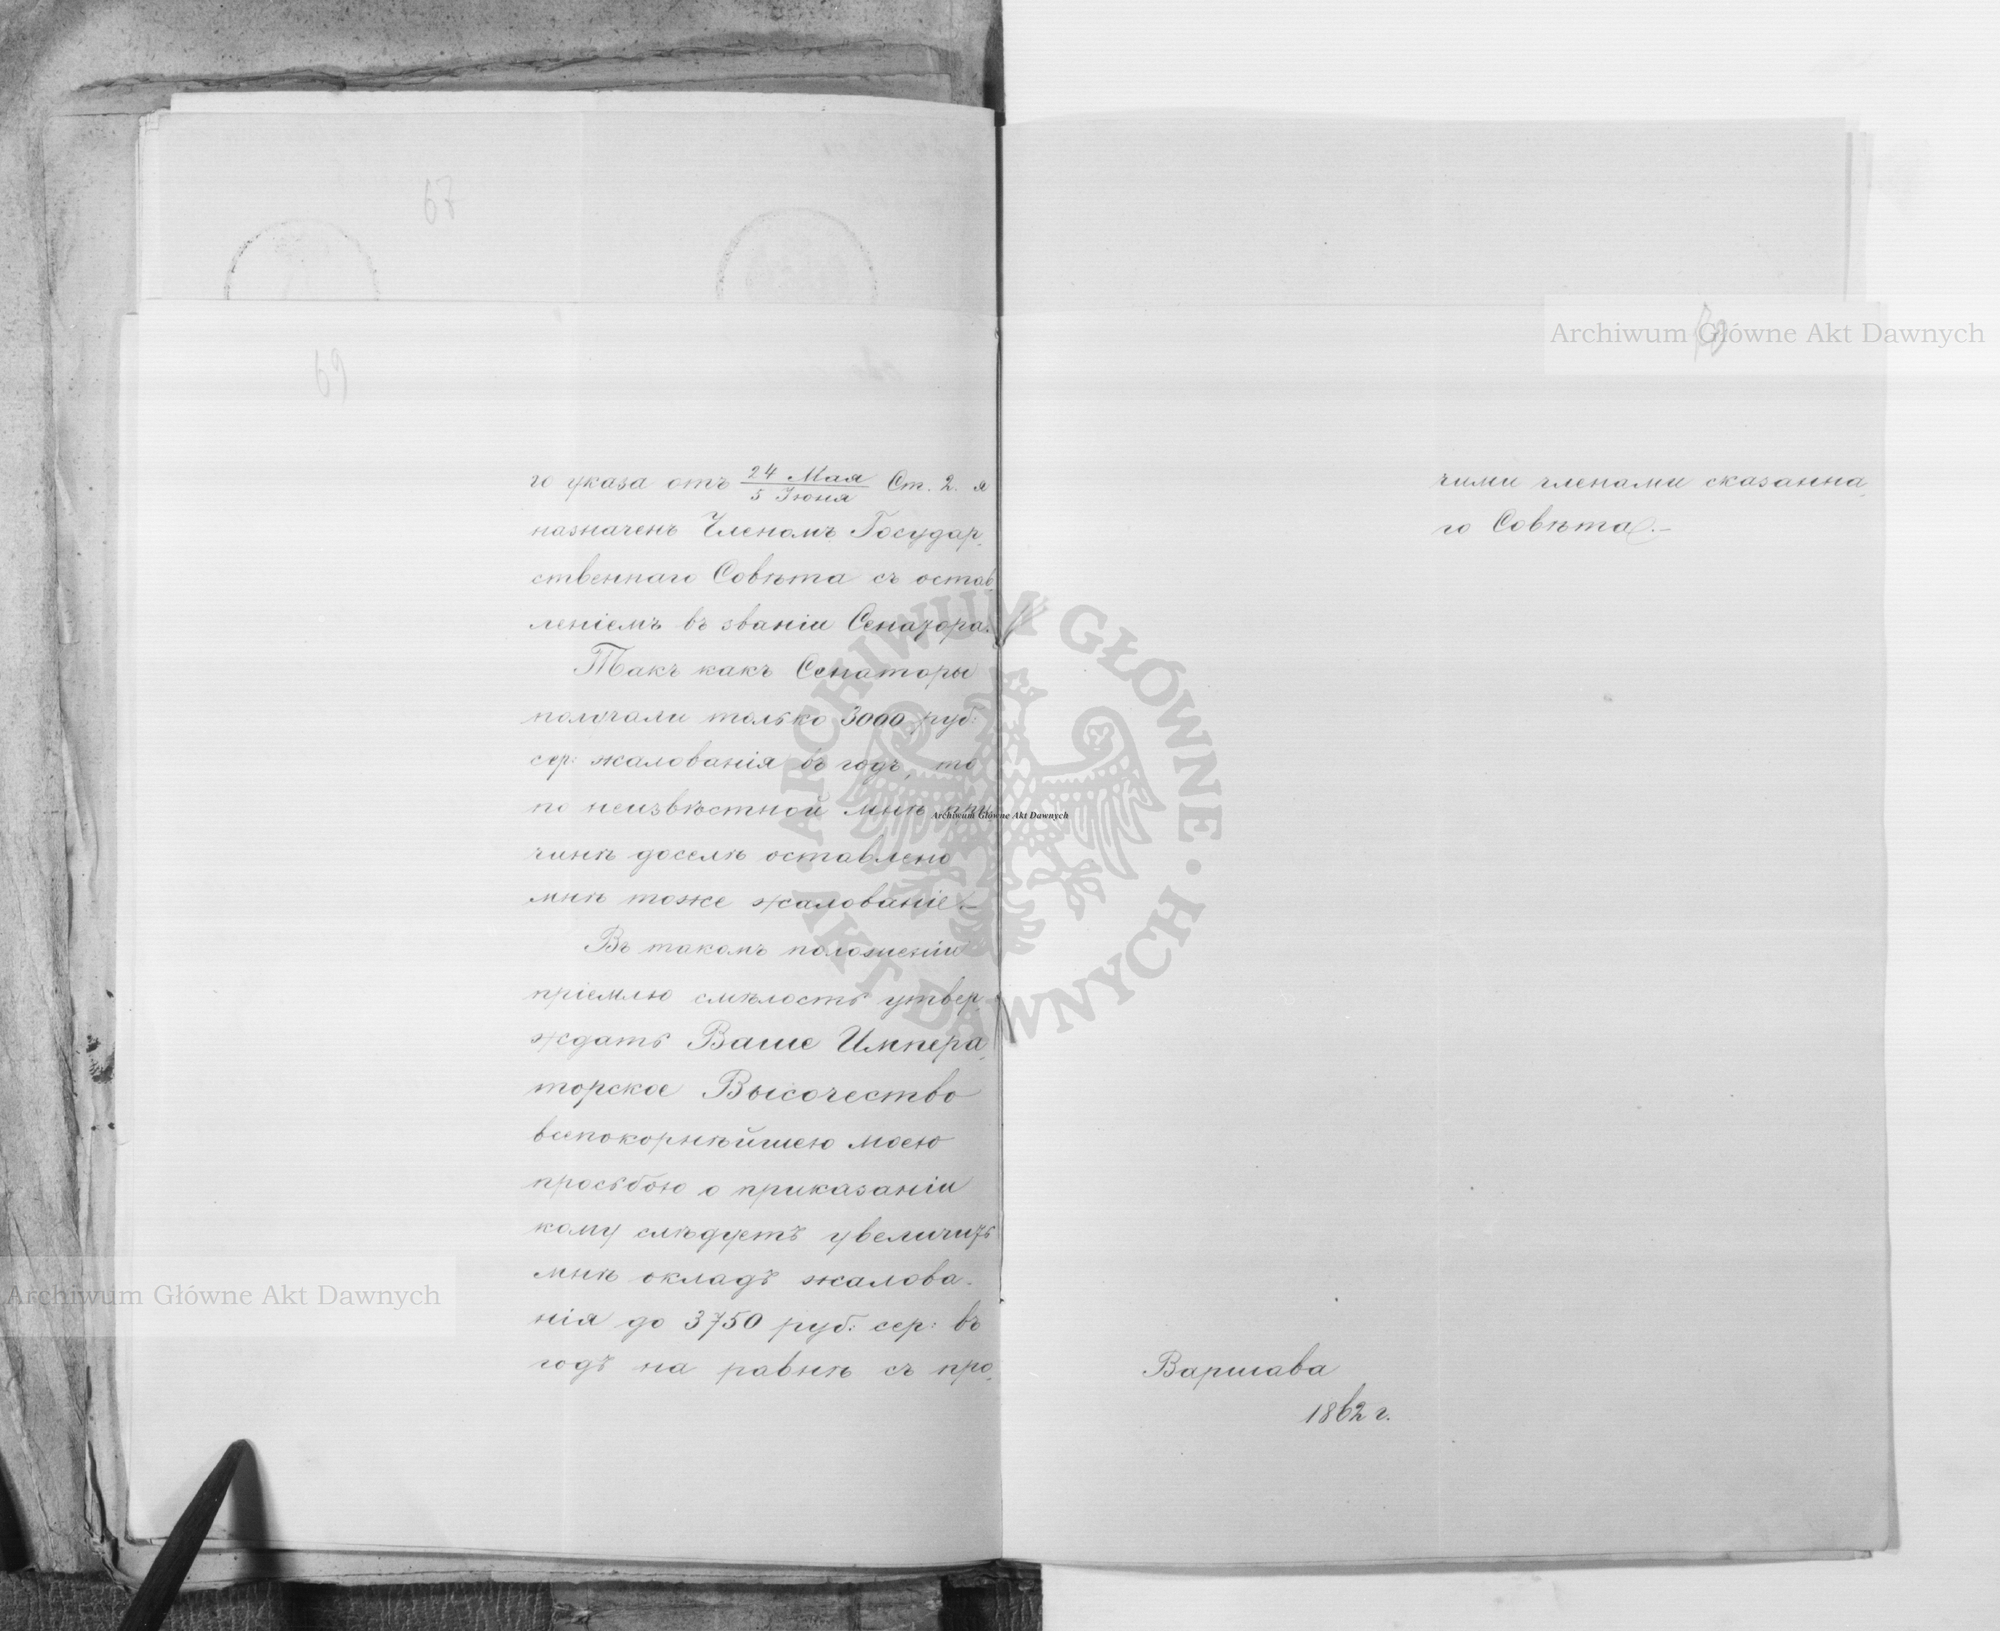 го указа отъ 24 Мая / 5 Іюня Ст. 2. я
назначенъ Членомъ Государ,
ственнаго Совѣта съ остав,
леніемъ въ званіи Сенатора.
Такъ какъ Сенаторы
получали только 3000 руб:
сер: жалованія въ годъ, то
по неизвѣстной мнѣ при
чинѣ доселѣ оставлено
мнѣ тоже жалованіе.—
Въ такомъ положеніи
пріемлю смѣлость утвер,
ждать Ваше Импера,
торское Высочество
всепокорнѣйшею моею
просьбою о приказаніи
кому слѣдуетъ увеличить
мнѣ окладъ жалова-
нія до 3750 руб: сер: въ
годъ на равнѣ съ про,
чими членами сказанна,
го Совѣта.—
Варшава
1862 г.
69
Archiwum Główne Akt Dawnych
Archiwum Główne Akt Dawnych
Archiwum Główne Akt Dawnych
ARCHIWUM GŁÓWNE AKT DAWNYCH